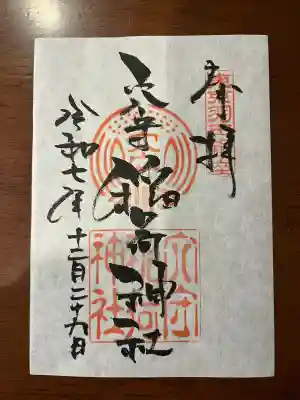 奉拝
穴守稲荷神社
令和七年十二月二十九日
穴守
稲荷
神社